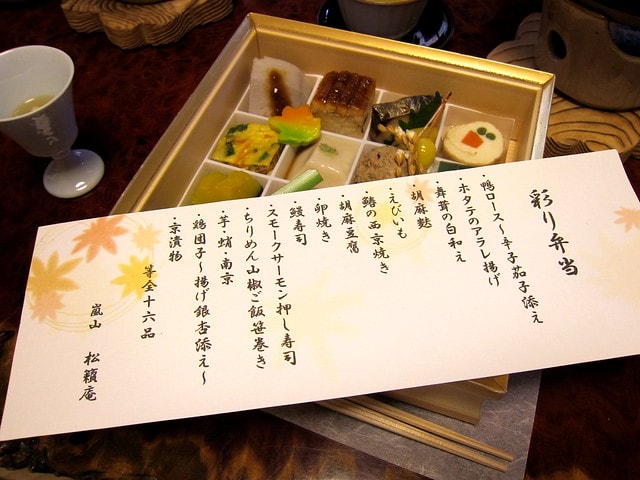 彩り弁当
・鴨ロース〜辛子茄子添え
・ホタテのアラレ揚げ
・舞茸の白和え
・胡麻麩
・えびいも
・鰆の西京焼き
・胡麻豆腐
・卵焼き
・鰻寿司
・スモークサーモン押し寿司
・ちりめん山椒ご飯笹巻き
・芋・蛸・南京
・鶏団子〜揚げ銀杏添え〜
・京漬物
等全十六品
嵐山 松籟庵